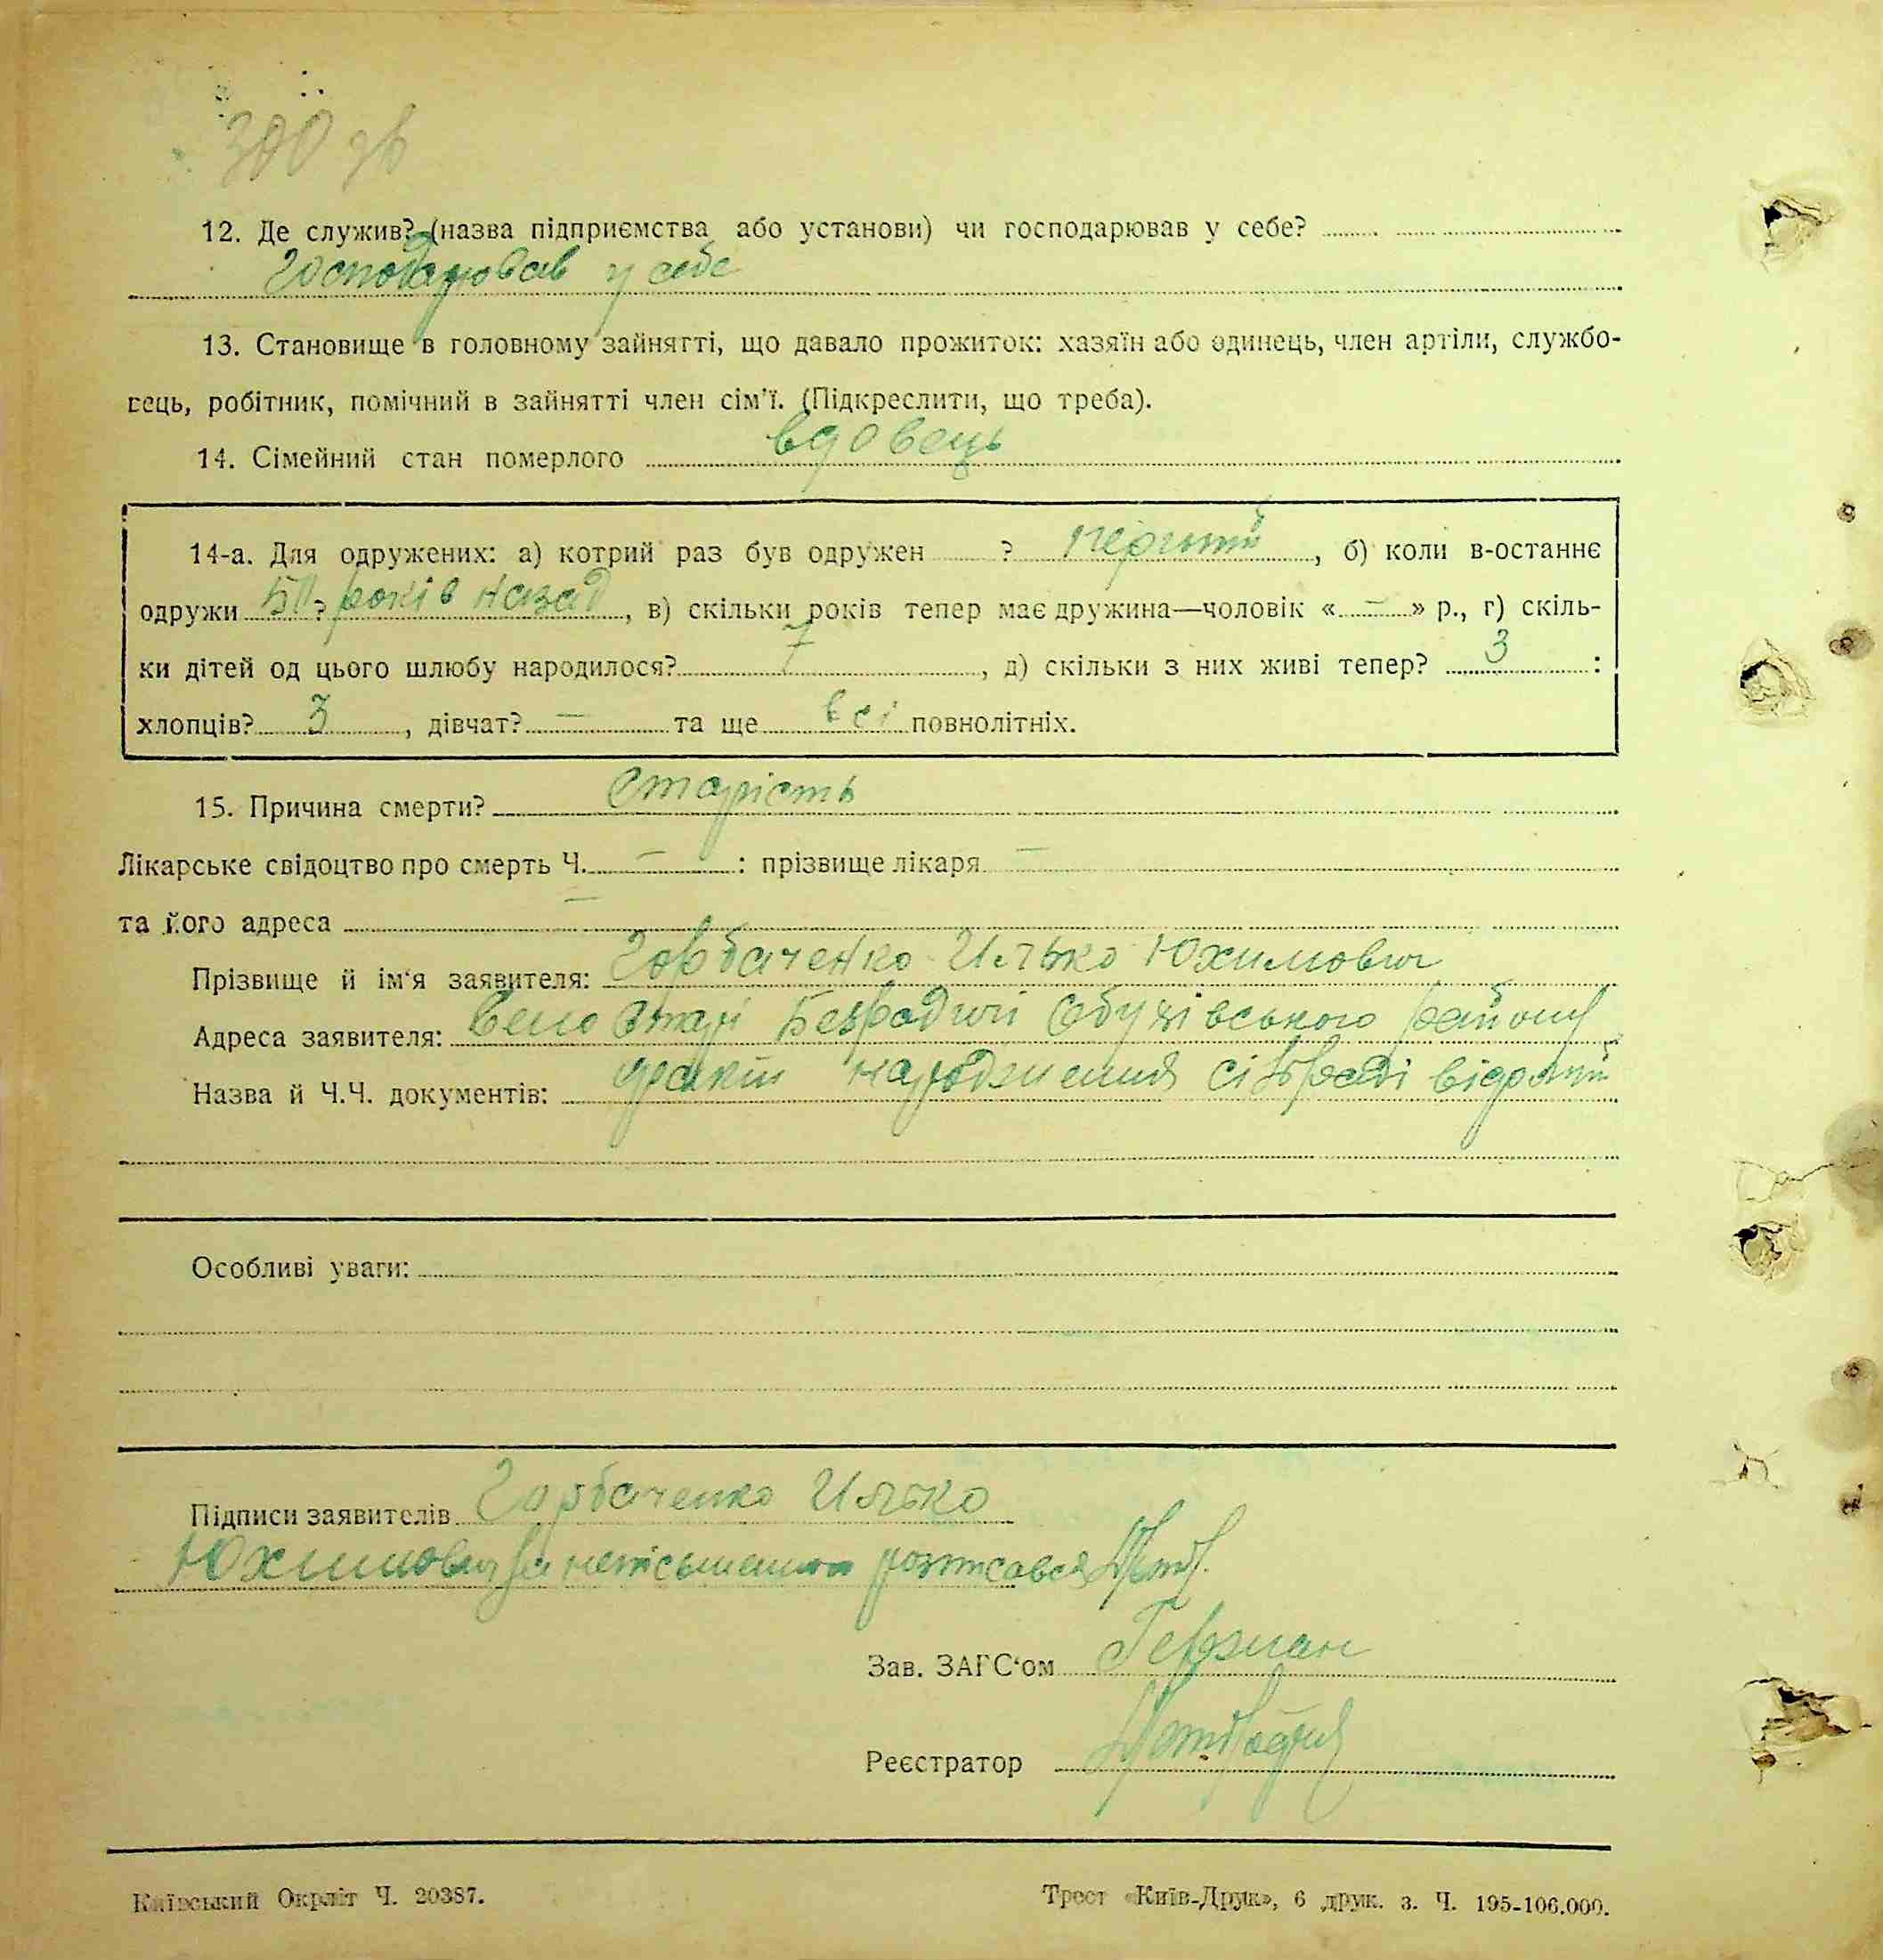 300 зв
12. Де служив? (назва підприємства або установи) чи господарював у себе?
Господарював у себе
13. Становище в головному зайнятті, що давало прожиток: хазяїн або одинець, член артіли, службо-
вець, робітник, помічний в зайнятті член сім'ї. (Підкреслити, що треба).
14. Сімейний стан померлого вдовець
14-а. Для одружених: а) котрий раз був одружен ? перший, б) коли в-останнє
одружи 50 ? років назад, в) скільки років тепер має дружина—чоловік «–» р., г) скіль-
ки дітей од цього шлюбу народилося? 7, д) скільки з них живі тепер? 3 :
хлопців? 3, дівчат? — та ще всі повнолітніх.
15. Причина смерти? Старість
Лікарське свідоцтво про смерть Ч. — : прізвище лікаря —
та його адреса —
Прізвище й ім'я заявителя: Горбаченко Илько Юхимович
Адреса заявителя: Село Старі Безрадичі Обухівського району
Назва й Ч.Ч. документів: факт народження сільраді відомий
Особливі уваги:
Підписи заявителів Горбаченко Илько
Юхимович за неписьменного розписався
Зав. ЗАГС'ом
Реєстратор
Київський Окрліт Ч. 20387.
Трест «Київ-Друк», 6 друк. з. Ч. 195-106.000.